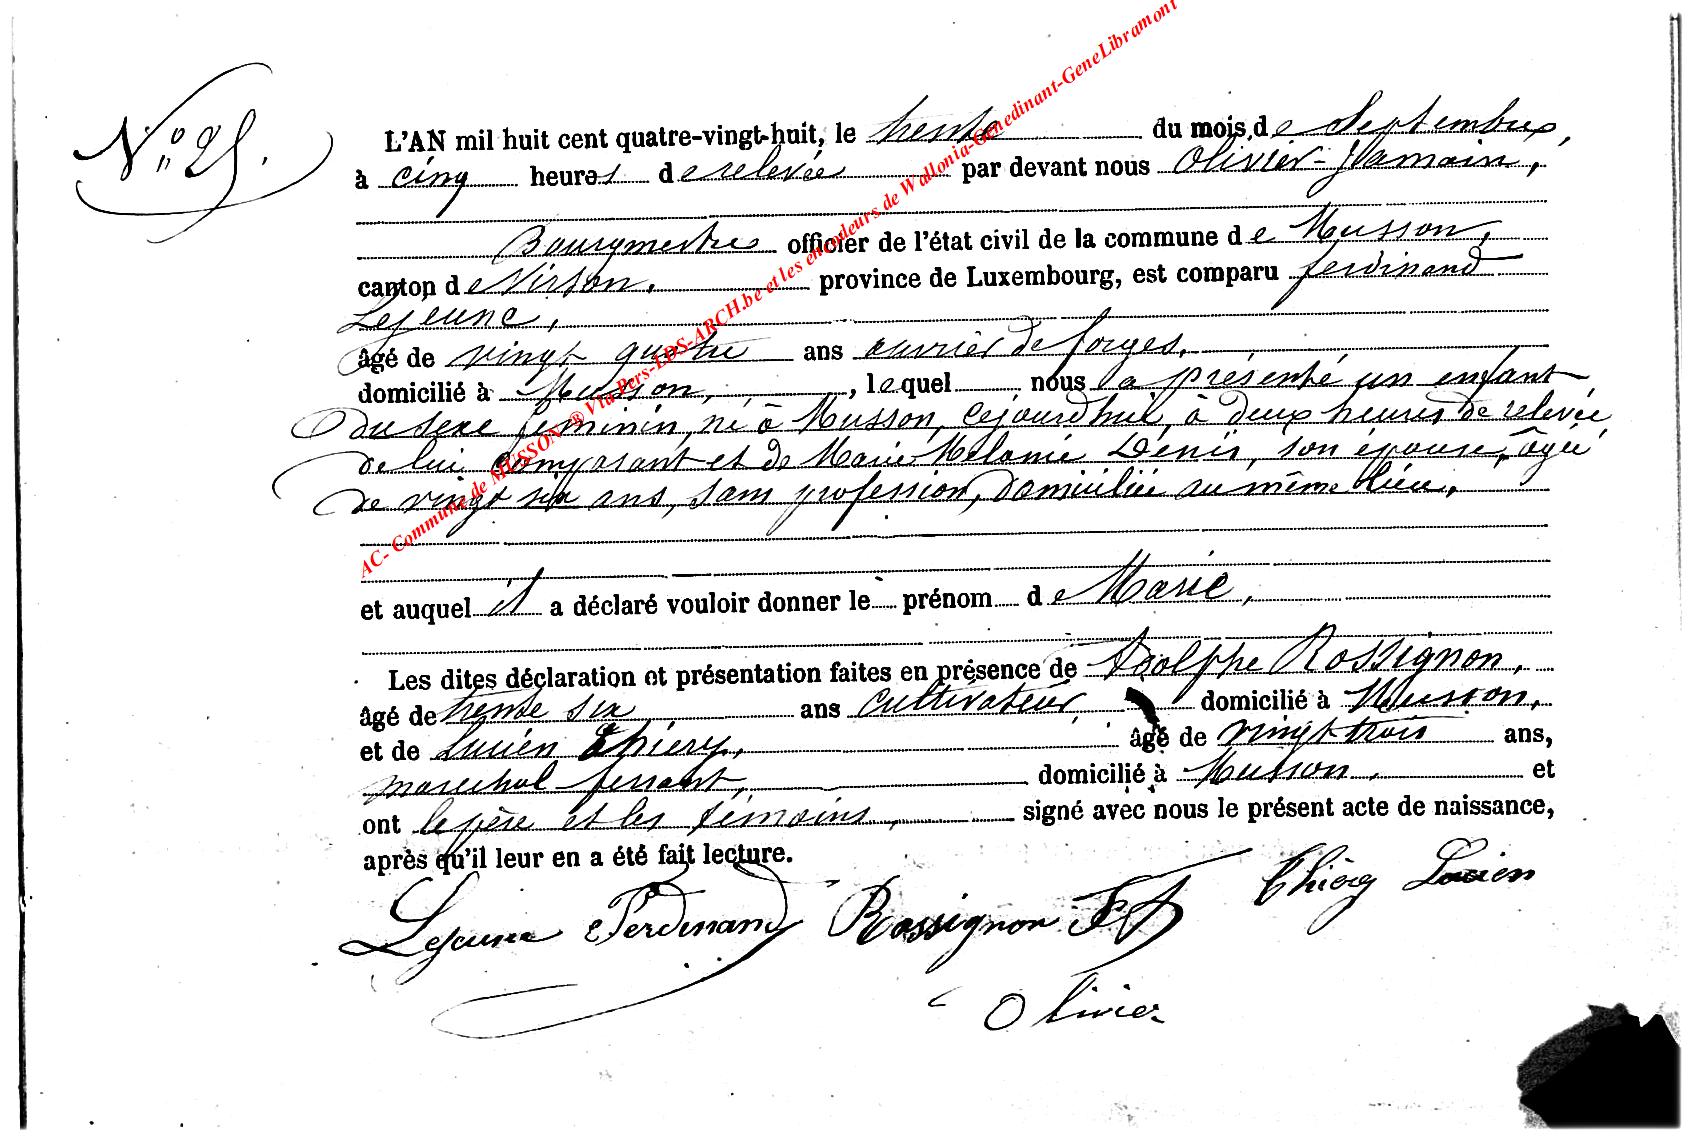 N° 25.
L'AN mil huit cent quatre-vingt-huit, le trente du mois de Septembre,
à cinq heures de relevée par devant nous Olivier-Jamain,
Bourgmestre officier de l'état civil de la commune de Musson,
canton de Virton, province de Luxembourg, est comparu ferdinand
Lejeune,
âgé de vingt quatre ans ouvrier de forges,
domicilié à Musson, lequel nous a présenté un enfant
du sexe féminin, né à Musson, cejourd'hui, à deux heures de relevée
de lui comparant et de Marie Mélanie Denis, son épouse, âgée
de vingt six ans, sans profession, domiciliée au même lieu.
et auquel il a déclaré vouloir donner le prénom de Marie,
Les dites déclaration et présentation faites en présence de Adolphe Rossignon,
âgé de trente six ans cultivateur, domicilié à Musson,
et de Lucien Thiéry, âgé de vingt trois ans,
maréchal ferrant, domicilié à Musson, et
ont le père et les témoins, signé avec nous le présent acte de naissance,
après qu'il leur en a été fait lecture.
Lejeune Ferdinand Rossignon Thiéry Lucien
Olivier
AC- Commune de MUSSON ® Via Pers-LDS-ARCH.be et les encodeurs de Wallonia-Genedinant-GeneLibramont